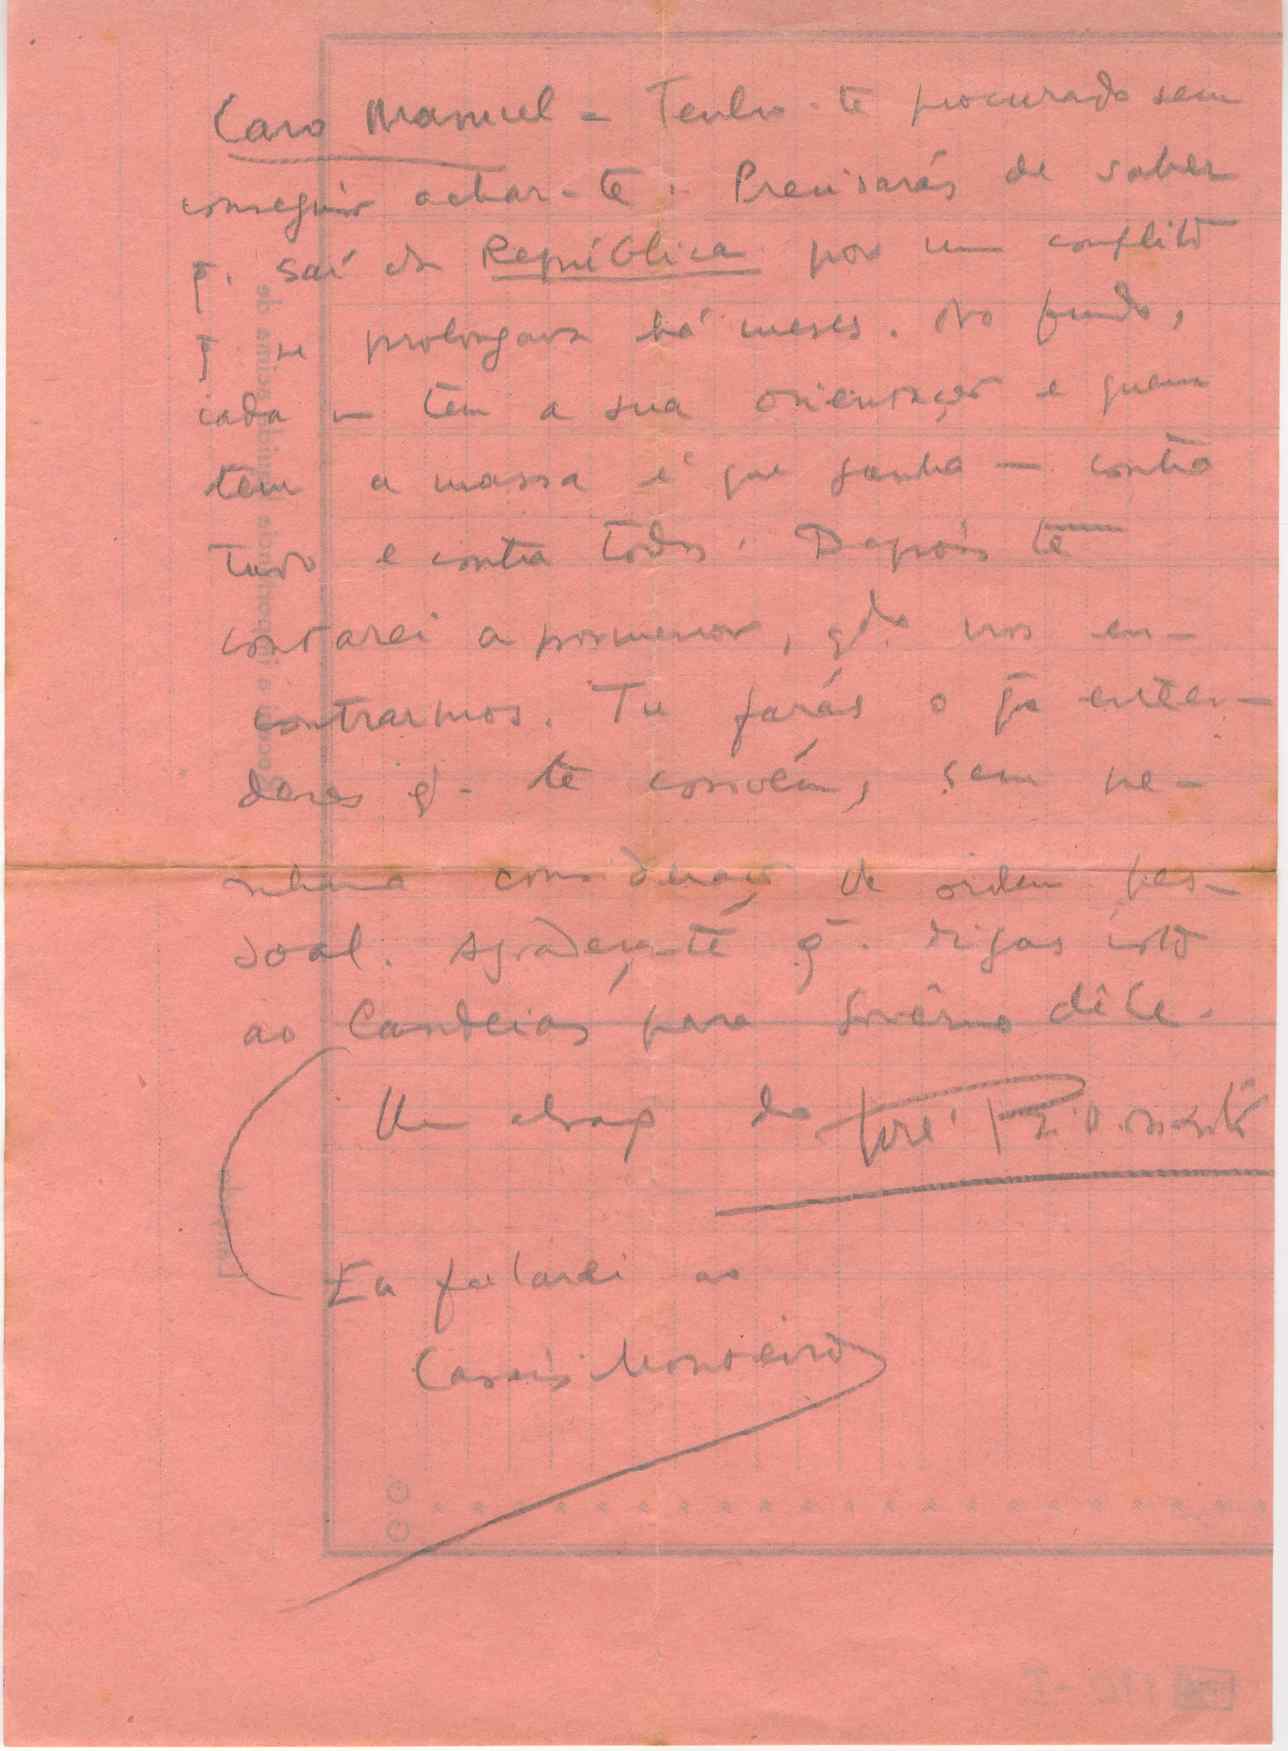 Caro Manuel - Tenho-te procurado sem
conseguir achar-te. Precisarás de saber
q. saí da República por um conflito
q se prolongava há meses. No fundo,
cada um tem a sua orientação e quem
tem a massa é que ganha — contra
tudo e contra todos. Depois te
contarei a pormenor, qdo nos en-
contrarmos. Tu farás o q entên-
deres q. te convém, sem ne-
nhuma consideração de ordem pes-
soal. Agradeço-te q. digas isto
ao Candeias para govêrno dêle.
Um abraço do José
Eu falarei ao
Casais Monteiro